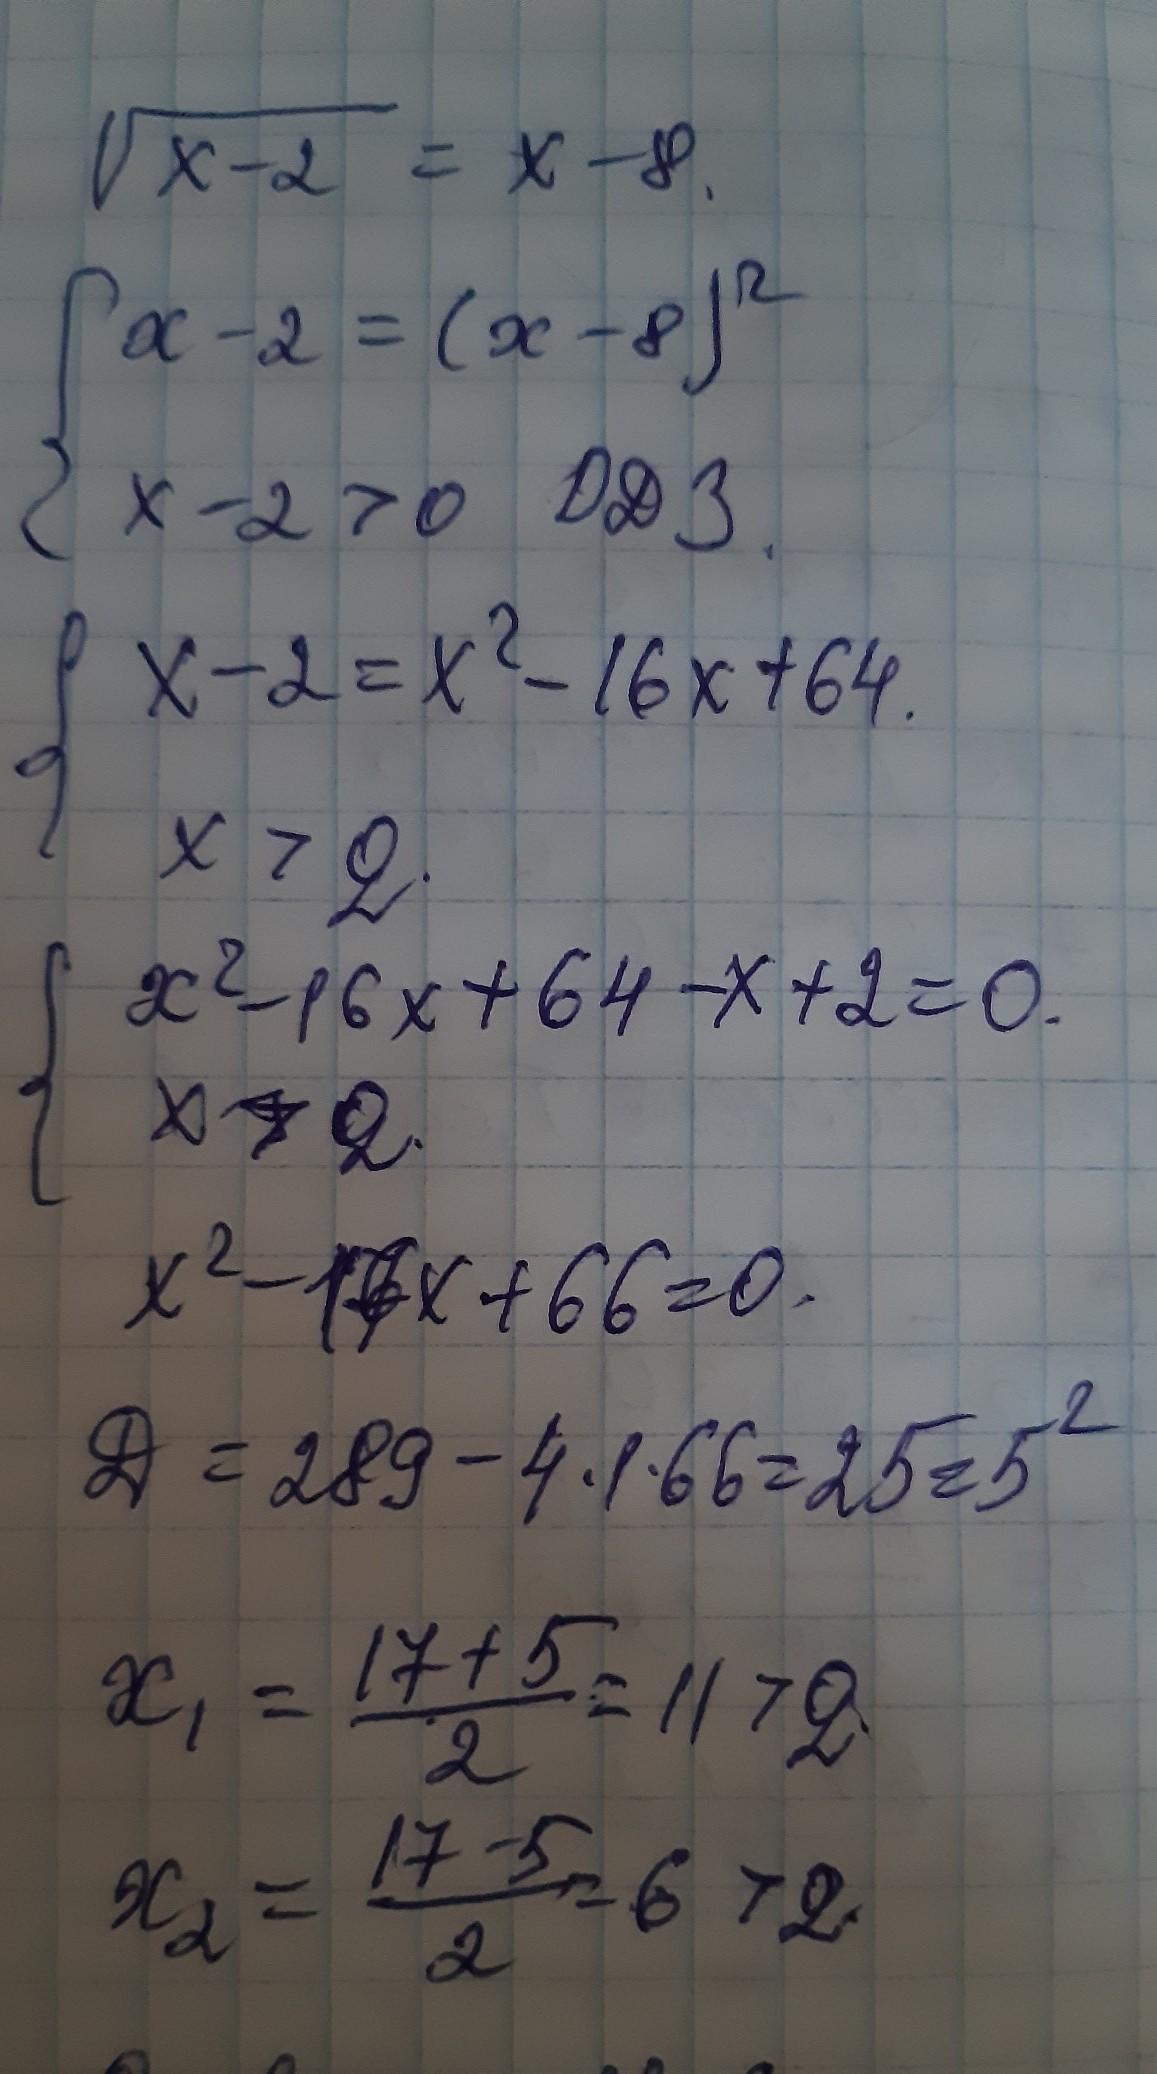 √(x-2) = x-8.
x-2 = (x-8)²
x-2>0 ОДЗ.
x-2=x²-16x+64.
x > 2.
x²-16x+64-x+2=0.
x > 2.
x²-17x+66=0.
D = 289-4·1·66=25=5²
x₁ = (17+5)/2 = 11 > 2.
x₂ = (17-5)/2 = 6 > 2.